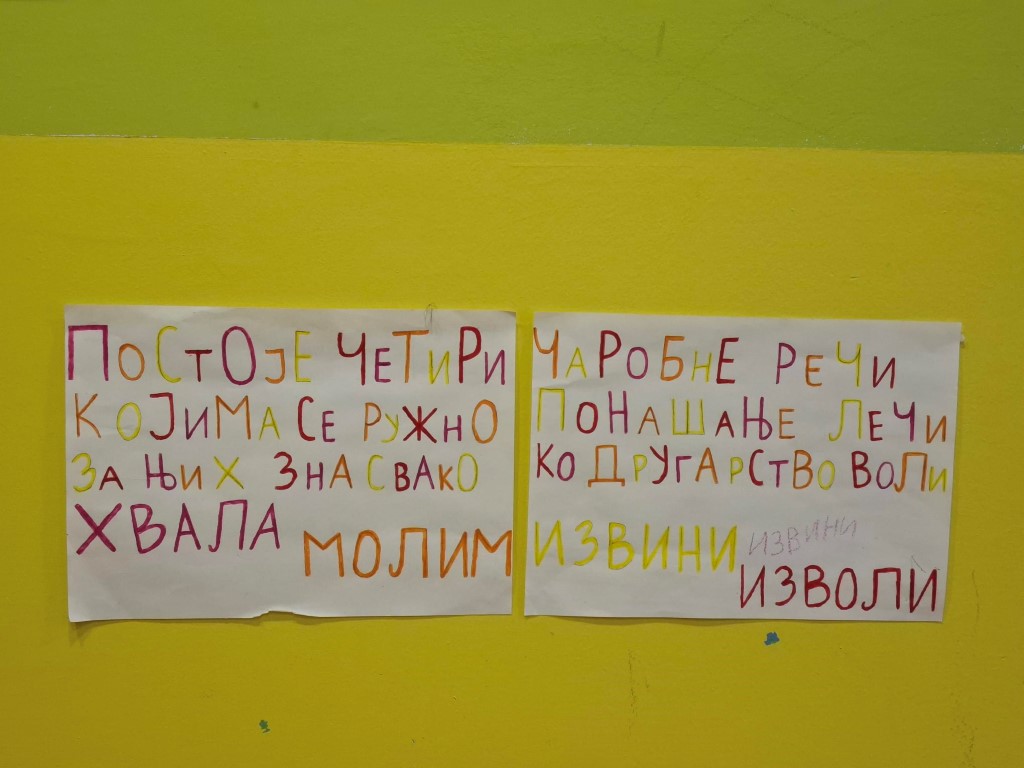 ПОСТОЈЕ ЧЕТИРИ ЧАРОБНЕ РЕЧИ
КОЈИМА СЕ РУЖНО ПОНАШАЊЕ ЛЕЧИ
ЗА ЊИХ ЗНА СВАКО КО ДРУГАРСТВО ВОЛИ
ХВАЛА МОЛИМ ИЗВИНИ ИЗВИНИ ИЗВОЛИ